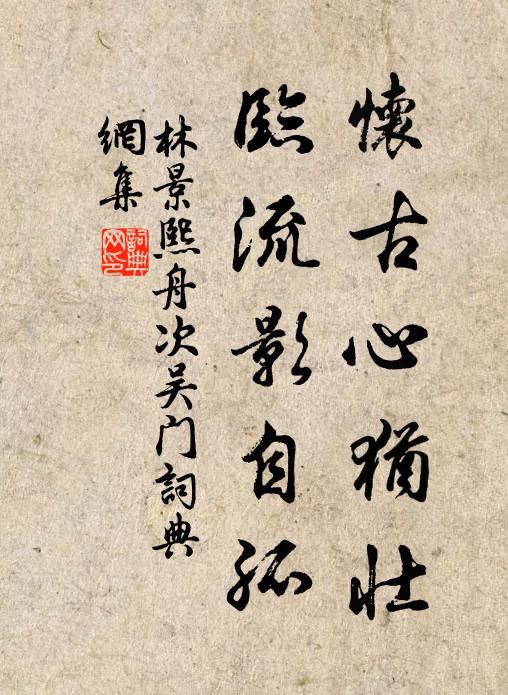 懷古心猶壯
臨流影自孤
林景熙舟次吴门詞典
網集
詞典
网印